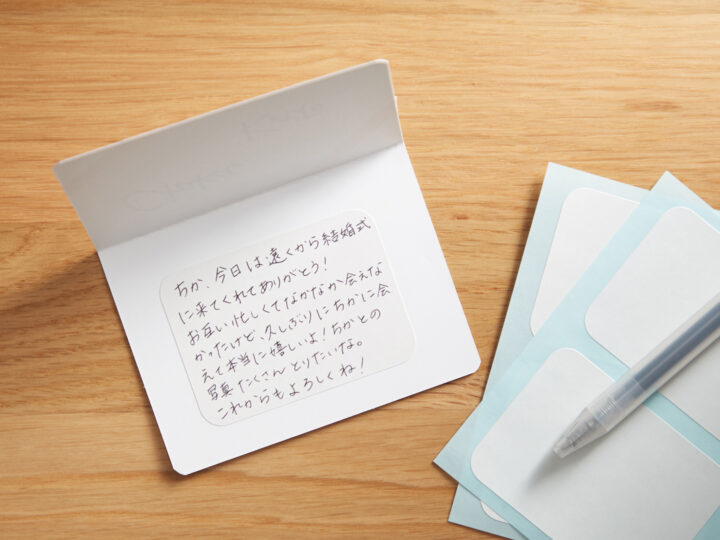 ちか、今日は遠くから結婚式
に来てくれてありがとう！
お互い忙しくてなかなか会えな
かったけど、久しぶりにちかに会
えて本当に嬉しいよ！ちかとの
写真たくさんとりたいな。
これからもよろしくね！